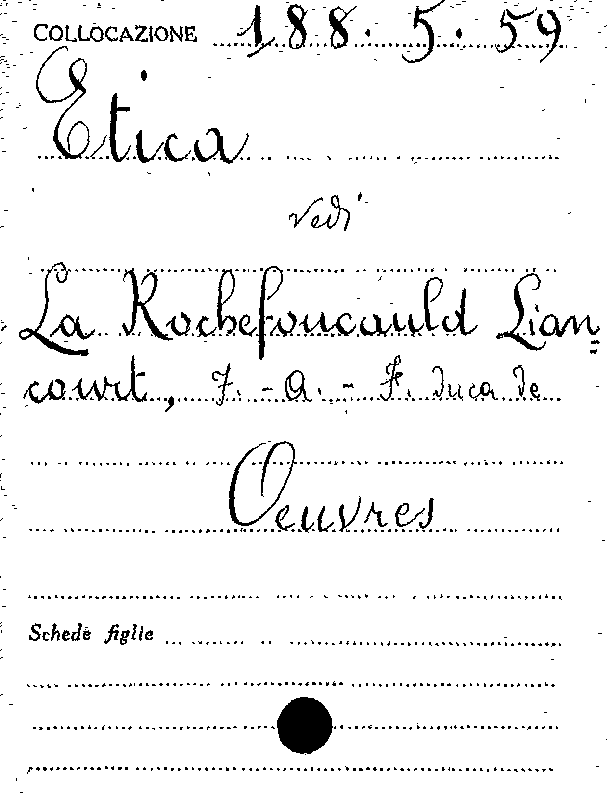 COLLOCAZIONE 188. 5. 59
Etica
vedi
La Rochefoucauld Lian=
court, F. - A. - F. duca de
Oeuvres
Schede figlie